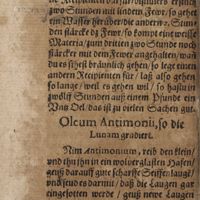 zwo Stunden mit linden Fewr, so gehet
ein Wasser herüber die andern 2. Stun-
den stärcke dz Fewr, so kompt eine weisse
Materia / zum dritten zwo Stunde noch
stärcker mit dem Fewer angehalten / wañ
du es sihest bräunlich gehen / so lege einen
andern Recipienten für / laß also gehen
so lange / weil es gehen wil / so hastu in
zwölff Stunden auß einem Pfunde ein
Vntz Oel / das ist zu vielen Sachen gut.
Oleum Antimonii, so die
Lunam gradiert.
Nim Antimonium, reib den klein /
und thu jhn in ein wolverglasten Hafen /
geuß darauff gute scharffe Seiffenlaugẽ /
und seud es darmit / daß die Laugen gar
eingesotten werde / geuß newe Laugen